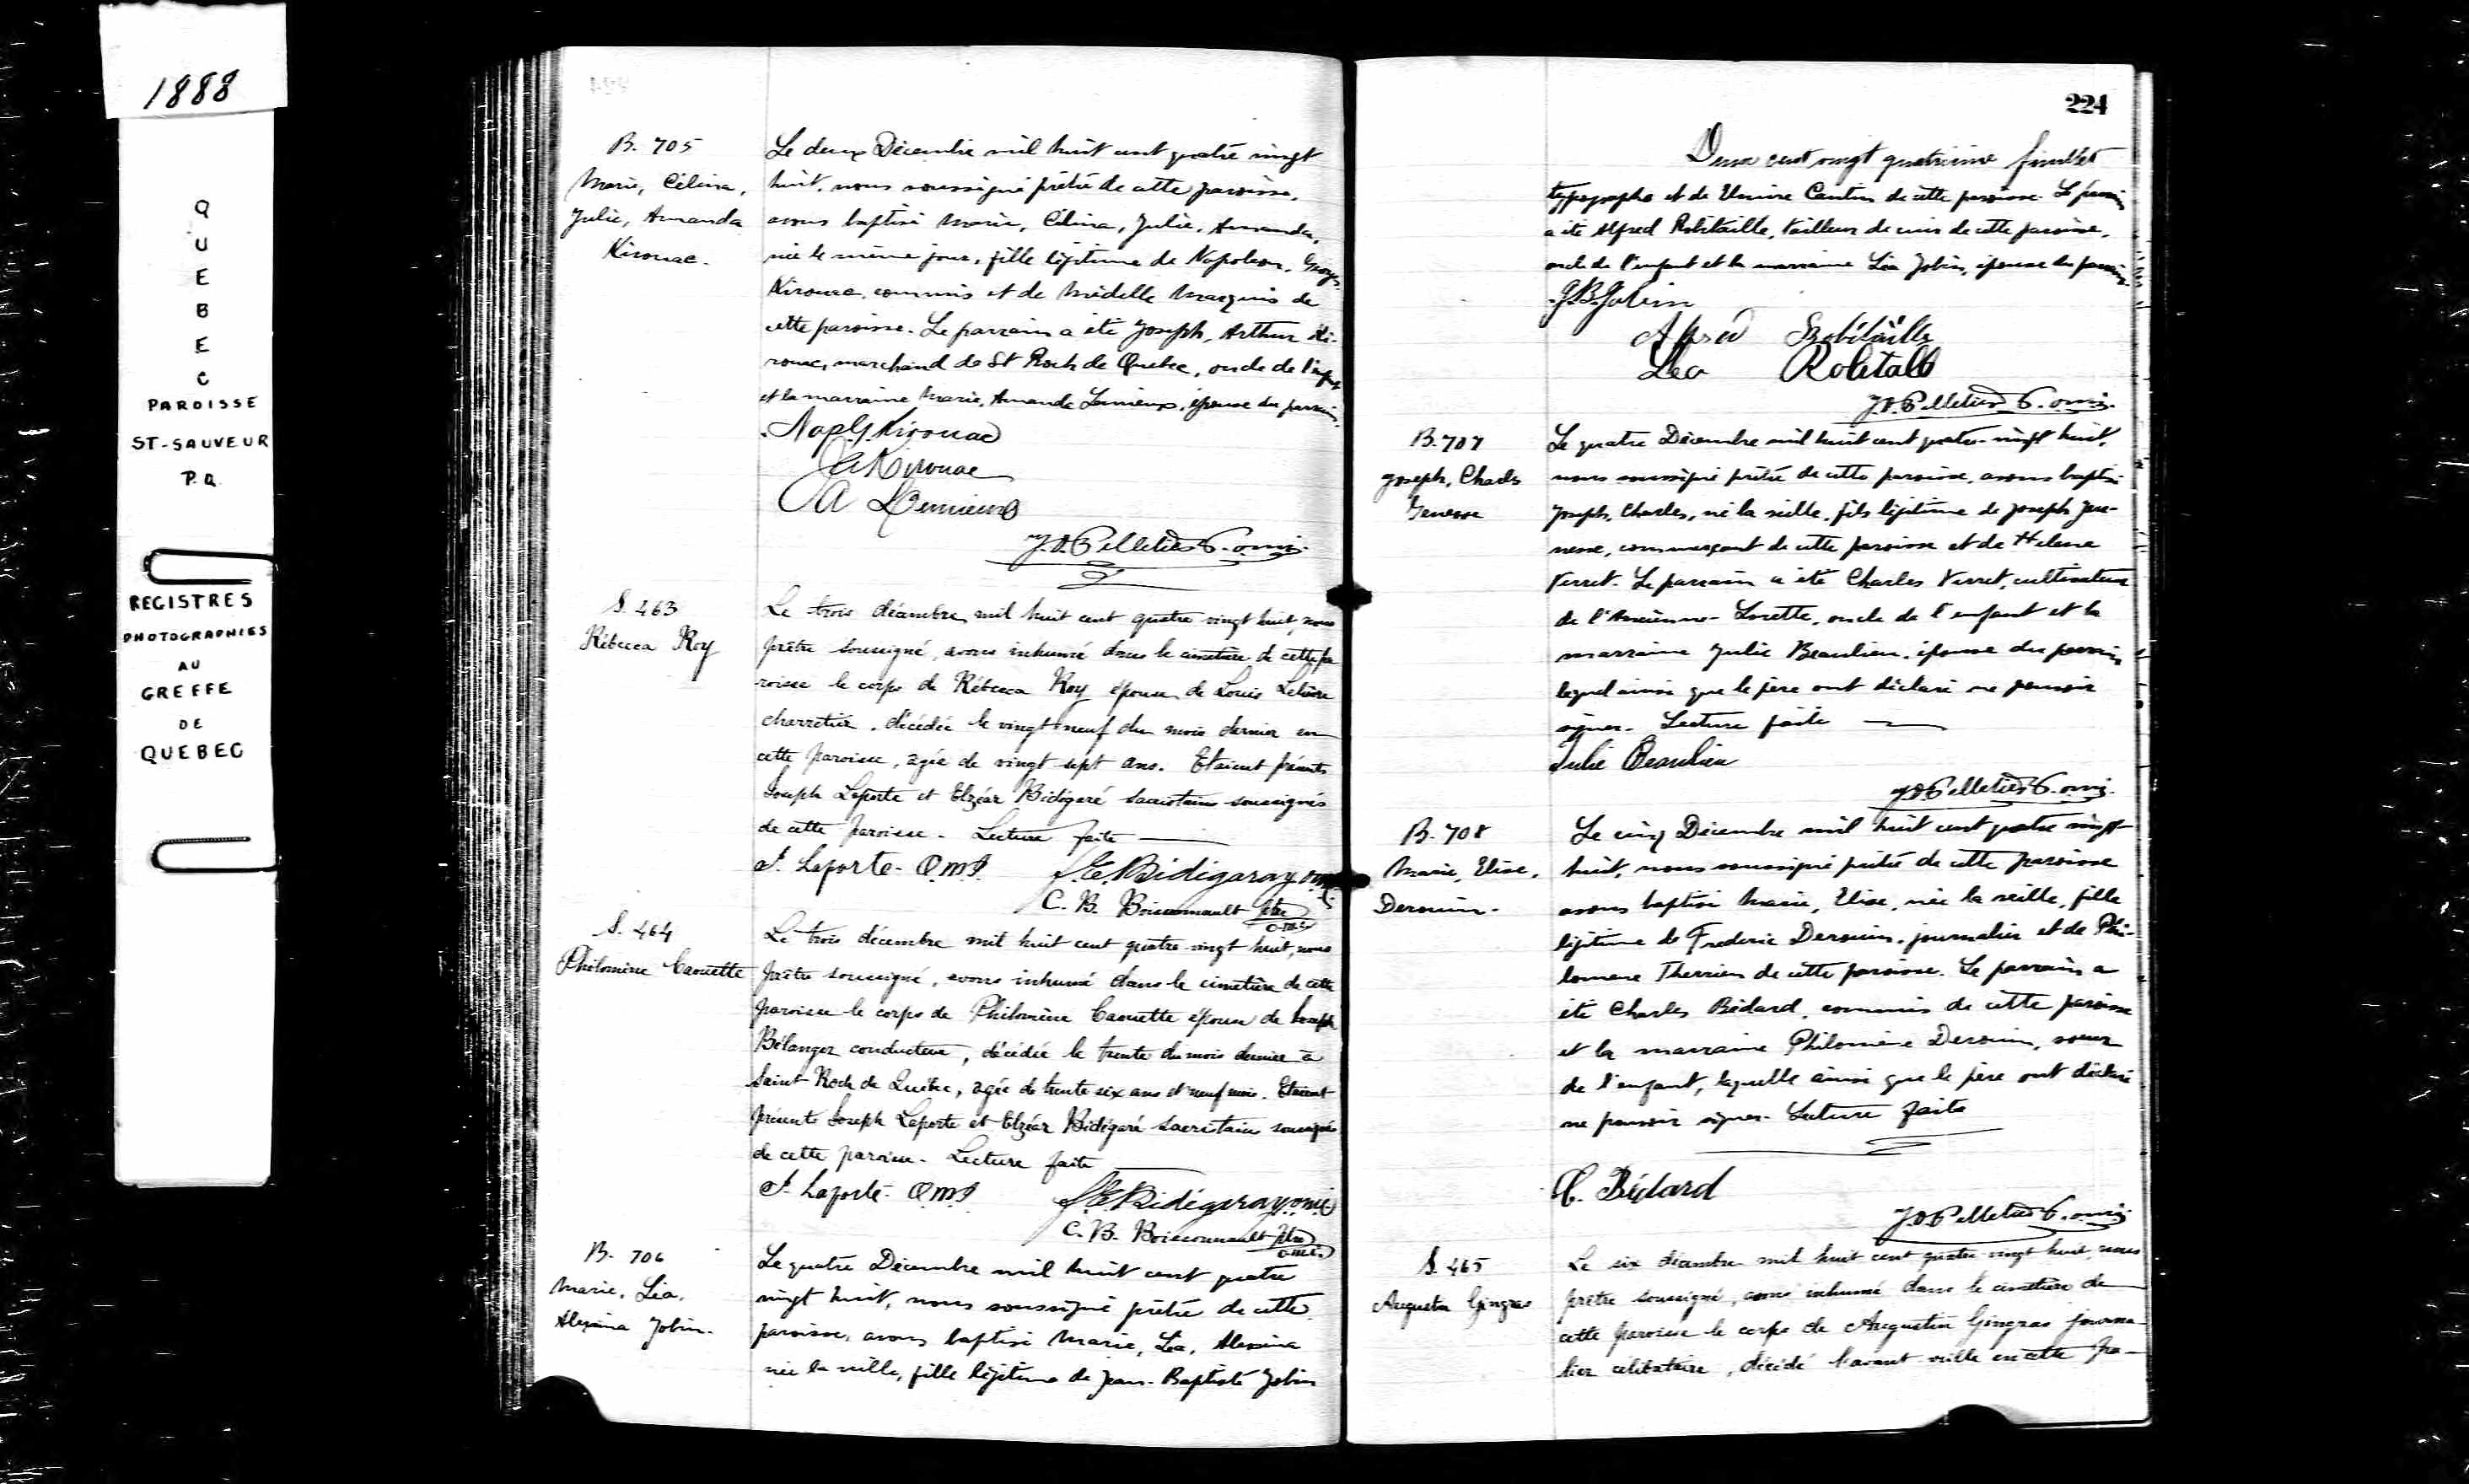 1888
QUEBEC
PAROISSE
ST-SAUVEUR
P.Q.
REGISTRES
PHOTOGRAPHIES
AU
GREFFE
DE
QUEBEC
B. 705
Marie, Célina,
Julie, Amanda
Kirouac.
Le deux Décembre mil huit cent quatre vingt
huit, nous soussigné prêtre de cette paroisse,
avons baptisé Marie, Célina, Julie, Amanda,
née le même jour, fille légitime de Napoléon, Georges
Kirouac, commis et de Médelle Marquis de
cette paroisse. Le parrain a été Joseph, Arthur Ki-
rouac, marchand de St Roch de Québec, oncle de l'enfant
et la marraine Marie, Amanda Lemieux, épouse du parrain.
Nap. G. Kirouac
J A Kirouac
A Lemieux
J. D. Pelletier P. omi.
S. 463
Rébecca Roy
Le trois décembre mil huit cent quatre vingt huit, nous
prêtre soussigné, avons inhumé dans le cimetière de cette pa
roisse le corps de Rébecca Roy épouse de Louis
charretier, décédée le vingt neuf du mois dernier en
cette paroisse, agée de vingt sept ans. Etaient présents
Joseph Laporte et Elzéar Bidégaré sacristains soussignés
de cette paroisse. Lecture faite
J. Laporte. O.M.I. J. E. Bidigaray omi
C. B. Boissonnault ptre
o.m.i.
S. 464
Philomène Caouette
Le trois décembre mil huit cent quatre-vingt huit, nous
prêtre soussigné, avons inhumé dans le cimetière de cette
paroisse le corps de Philomène Caouette épouse de Joseph
Bélanger conducteur, décédée le trente du mois dernier à
Saint Roch de Québec, agée de trente six ans et neuf mois. Etaient
présents Joseph Laporte et Elzéar Bidégaré sacristains soussignés
de cette paroisse. Lecture faite
J. Laporte. O.M.I. J. E. Bidégaray o.m.i.
C. B. Boissonnault ptre
o.m.i.
B. 706
Marie, Léa,
Alexina Jobin.
Le quatre Décembre mil huit cent quatre
vingt huit, nous soussigné prêtre de cette
paroisse, avons baptisé Marie, Léa, Alexina
née la veille, fille légitime de Jean-Baptiste Jobin
224
Deux cent vingt quatrième feuillet
typographe et de Cantin de cette paroisse. Le parrain
a été Alfred Robitaille, tailleur de cuir de cette paroisse,
oncle de l'enfant et la marraine Léa Jobin, épouse du parrain.
J. B. Jobin
Alfred Robitaille
Léa Robitaille
J. D. Pelletier P. omi.
B. 707
Joseph, Charles
Genesse
Le quatre Décembre mil huit cent quatre-vingt huit,
nous soussigné prêtre de cette paroisse, avons baptisé
Joseph, Charles, né la veille, fils légitime de Joseph Jeu-
nesse, commerçant de cette paroisse et de Helene
Verret. Le parrain a été Charles Verret, cultivateur
de l'Ancienne-Lorette, oncle de l'enfant et la
marraine Julie Beaulieu, épouse du parrain
lequel ainsi que le père ont déclaré ne pouvoir
signer. Lecture faite
Julie Beaulieu
J. D. Pelletier P. omi.
B. 708
Marie, Elise,
Derouin.
Le cinq Décembre mil huit cent quatre vingt-
huit, nous soussigné prêtre de cette paroisse
avons baptisé Marie, Elise, née la veille, fille
légitime de Frederic Derouin, journalier et de Phi-
lomene Therrien de cette paroisse. Le parrain a
été Charles Bédard, commis de cette paroisse
et la marraine Philomène Derouin, soeur
de l'enfant, laquelle ainsi que le père ont déclaré
ne pouvoir signer. Lecture faite
C. Bédard
J. D. Pelletier P. omi.
S. 465
Augustin Gingras
Le six décembre mil huit cent quatre-vingt huit, nous
prêtre soussigné, avons inhumé dans le cimetière de
cette paroisse le corps de Augustin Gingras journa-
lier célibataire, décédé l'avant veille en cette pa-